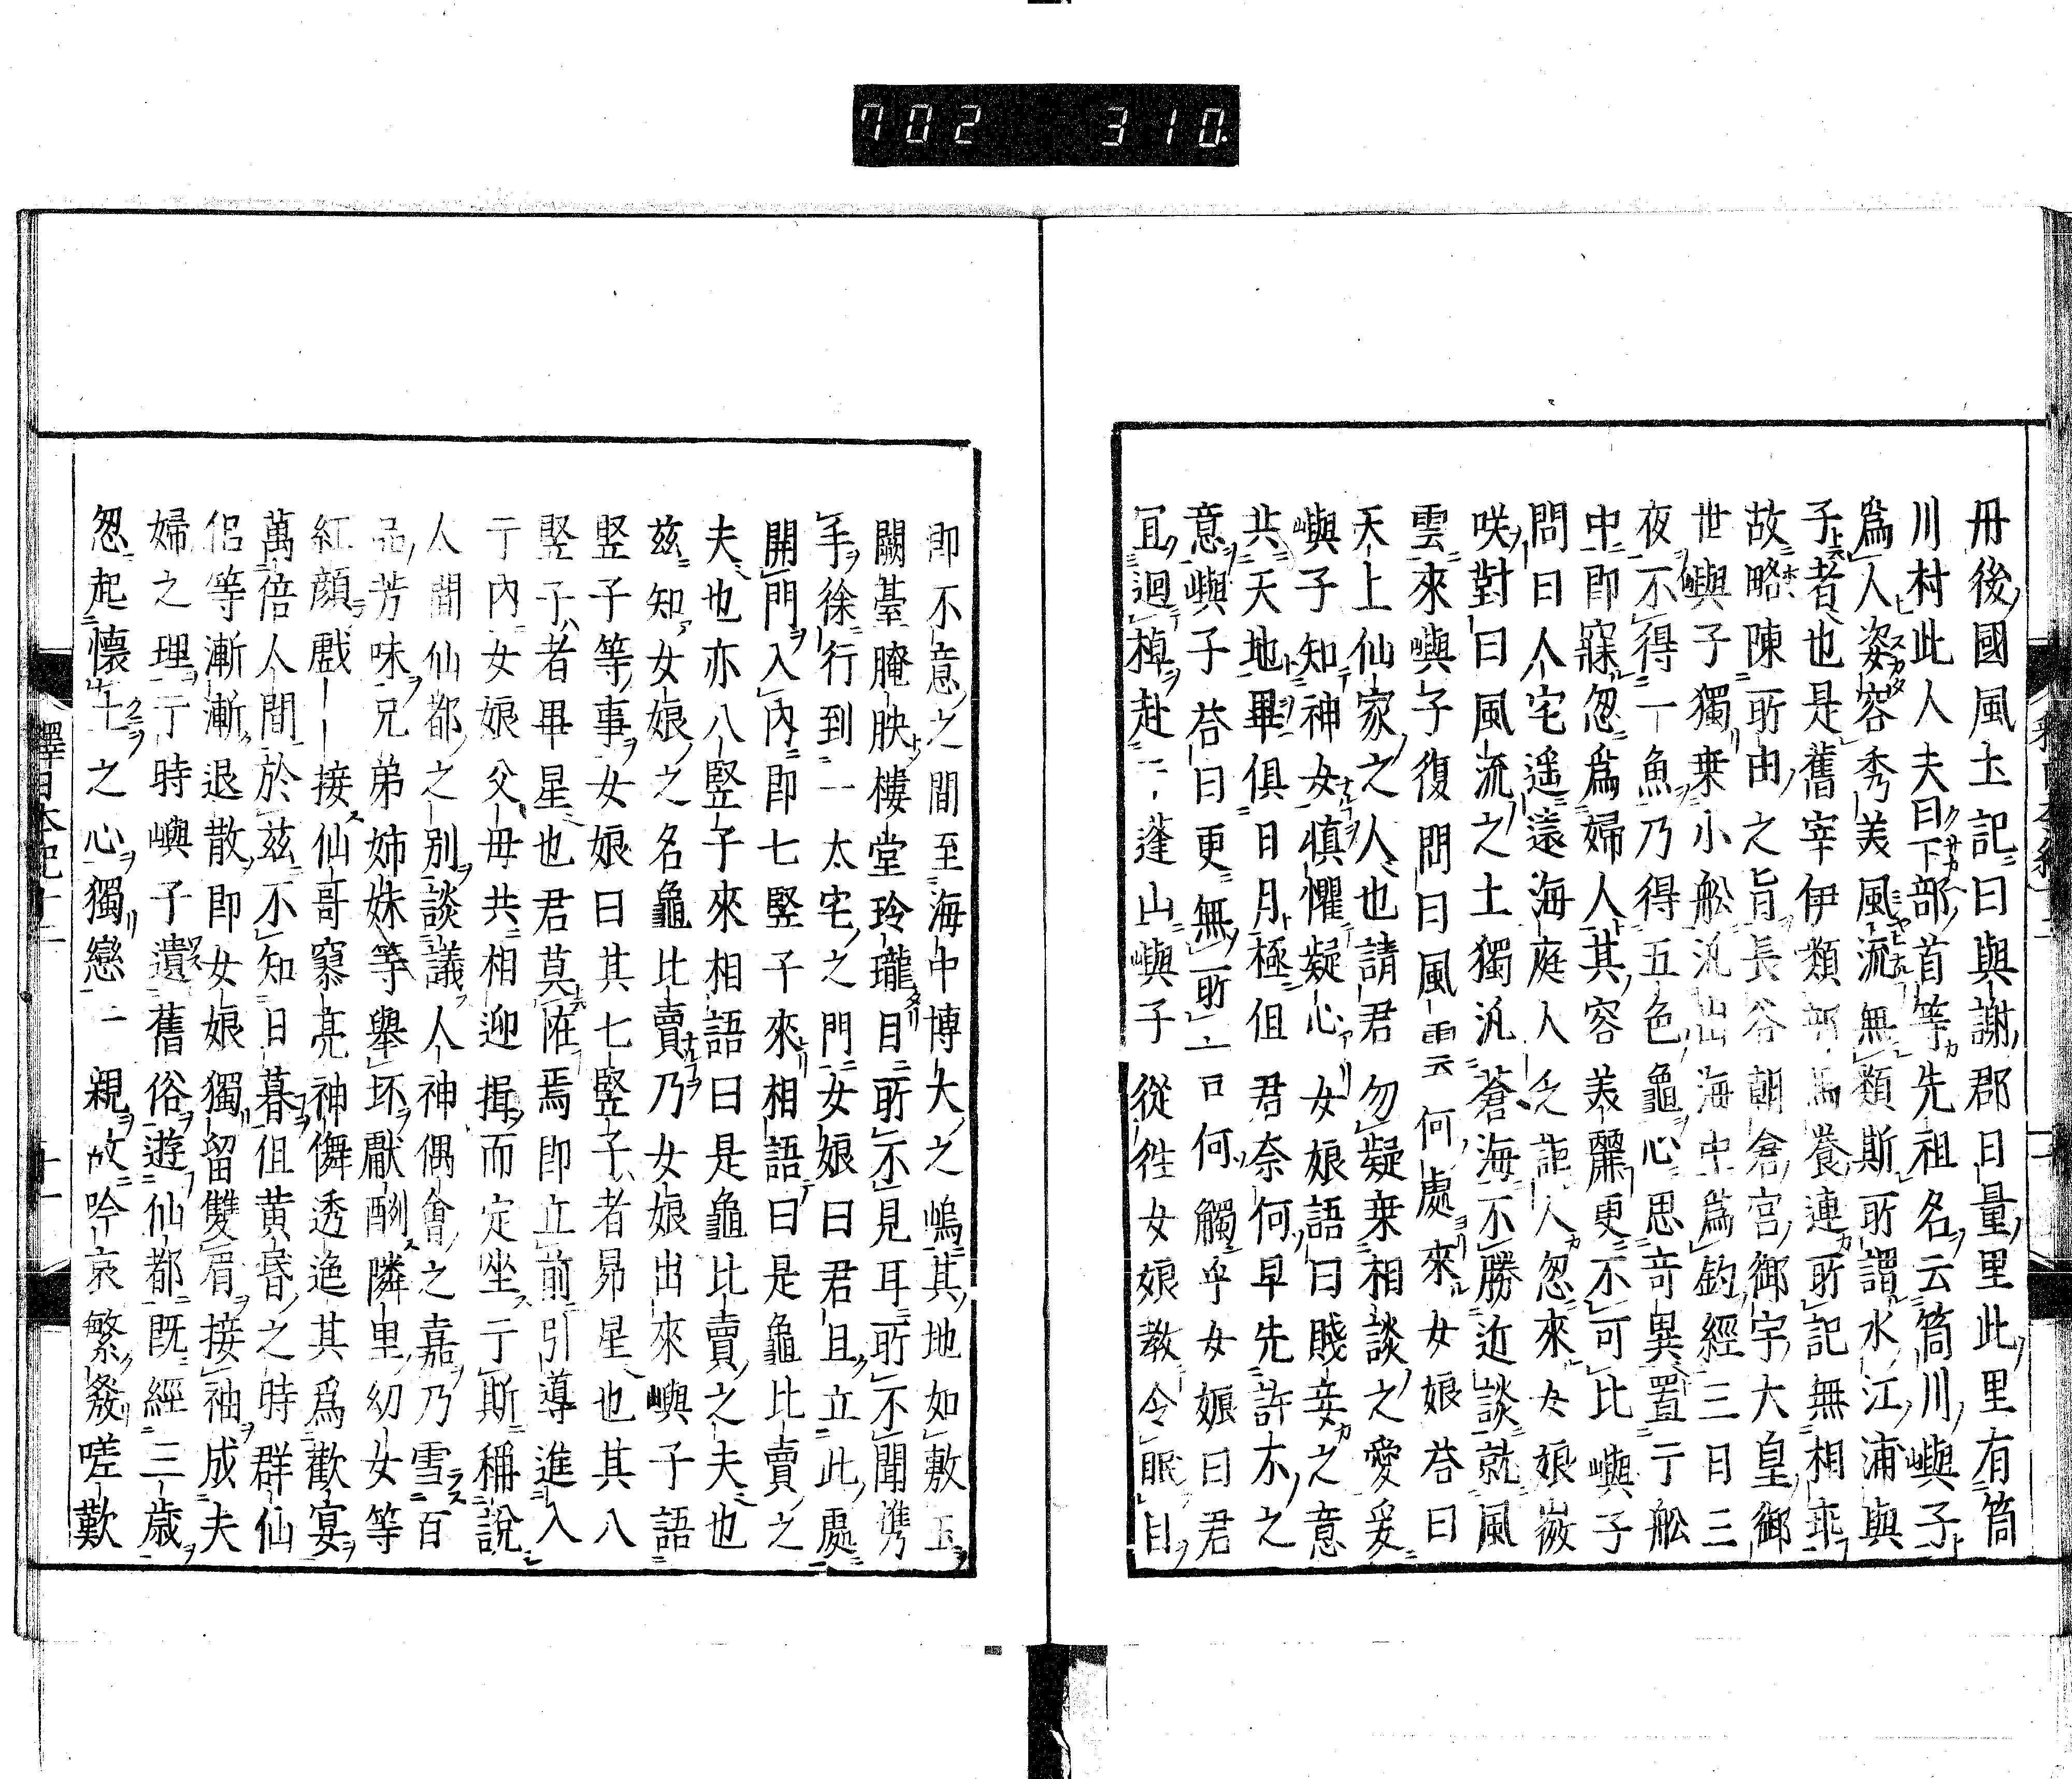 702 310.
丹後國風土記曰與謝郡日量里此里有筒
川村此人夫曰下部首等先祖名云筒川嶼子
爲人姿容秀美風流無類斯所謂水江浦與
子者也是舊宰伊類部馬養連所記無相乖
故略陳所由之旨長谷朝倉宮御宇大皇御
世嶼子獨乗小舩汎出海中爲釣經三日三
夜不得一魚乃得五色龜心思奇異置于舩
中即寐忽爲婦人其容美麗更不可比嶼子
問曰人宅遥遠海庭人乏詎人忽來女娘微
咲對曰風流之土獨汎蒼海不勝近談就風
雲來嶼子復問曰風雲何處來女娘荅曰
天上仙家之人也請君勿疑乗相談之愛爰
嶼子知神女慎懼疑心女娘語曰賤妾之意
共天地畢俱日月極但君奈何早先許不之
意嶼子荅曰更無所言何觸乎女娘曰君
冝迴棹赴二蓬山嶼子從徃女娘教令眠目
即不意之間至海中博大之嶋其地如敷玉
闕臺晻映樓堂玲瓏目所不見耳所不聞携
手徐行到一太宅之門女娘曰君且立此處
開門入內即七竪子來相語曰是龜比賣之
夫也亦八竪子來相語曰是龜比賣之夫也
茲知女娘之名龜比賣乃女娘出來嶼子語
竪子等事女娘曰其七竪子者昴星也其八
竪子者畢星也君莫恠焉即立前引導進入
于內女娘父母共相迎揖而定坐于斯稱說
人間仙都之別談議人神偶會之嘉乃雪百
品芳味兄弟姉妹等舉坏獻酬隣里幼女等
紅顏戲接仙哥寥亮神儛逶迤其爲歡宴
萬倍人間於茲不知日暮但黃昏之時群仙
侶等漸漸退散即女娘獨留雙肩接袖成夫
婦之理于時嶼子遺舊俗遊仙都既經三歲
忽起懷土之心獨戀二親故吟哀繁發嗟歎
釋日本紀十二 十一